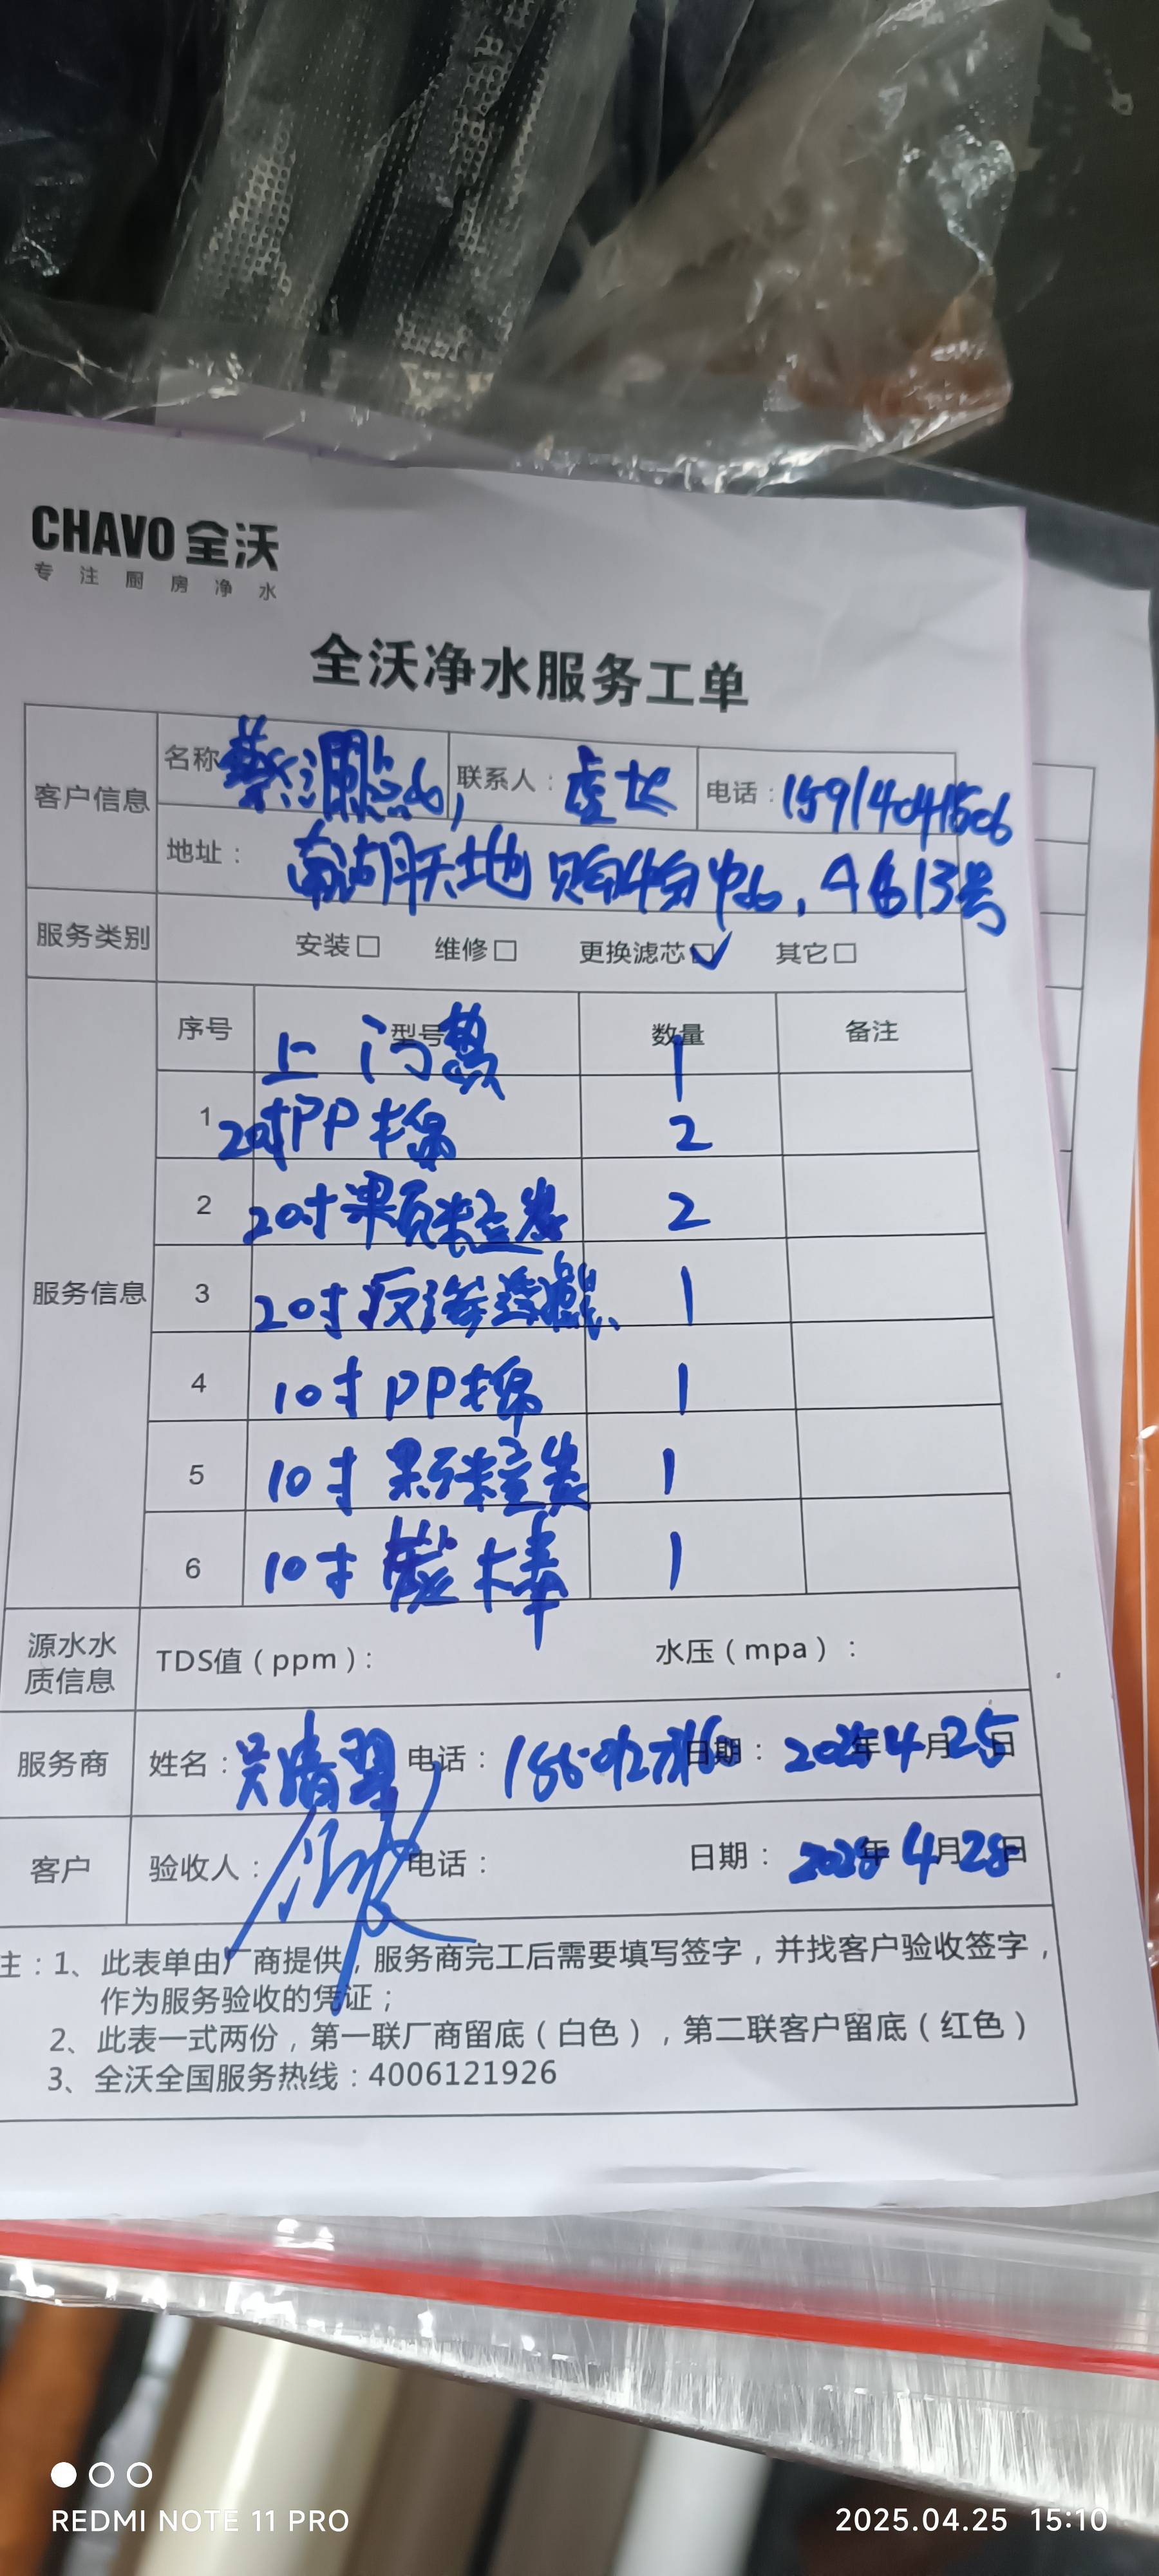 CHAVO 全沃
专注厨房净水
全沃净水服务工单
客户信息 名称 蔡澜点心 联系人： 电话：15914041506
地址： 南湖天地购物中心，A 13号
服务类别 安装□ 维修□ 更换滤芯☑ 其它□
序号 型号 数量 备注
上门 1
服务信息
1 20寸PP棉 2
2 20寸果壳粒炭 2
3 20寸反渗透膜 1
4 10寸PP棉 1
5 10寸果壳粒炭 1
6 10寸炭棒 1
源水水质信息 TDS值（ppm）： 水压（mpa）：
服务商 姓名： 电话： 日期：2025年4月25日
客户 验收人： 电话： 日期： 年4月 日
注：1、此表单由厂商提供，服务商完工后需要填写签字，并找客户验收签字，
作为服务验收的凭证；
2、此表一式两份，第一联厂商留底（白色），第二联客户留底（红色）
3、全沃全国服务热线：4006121926
REDMI NOTE 11 PRO
2025.04.25 15:10